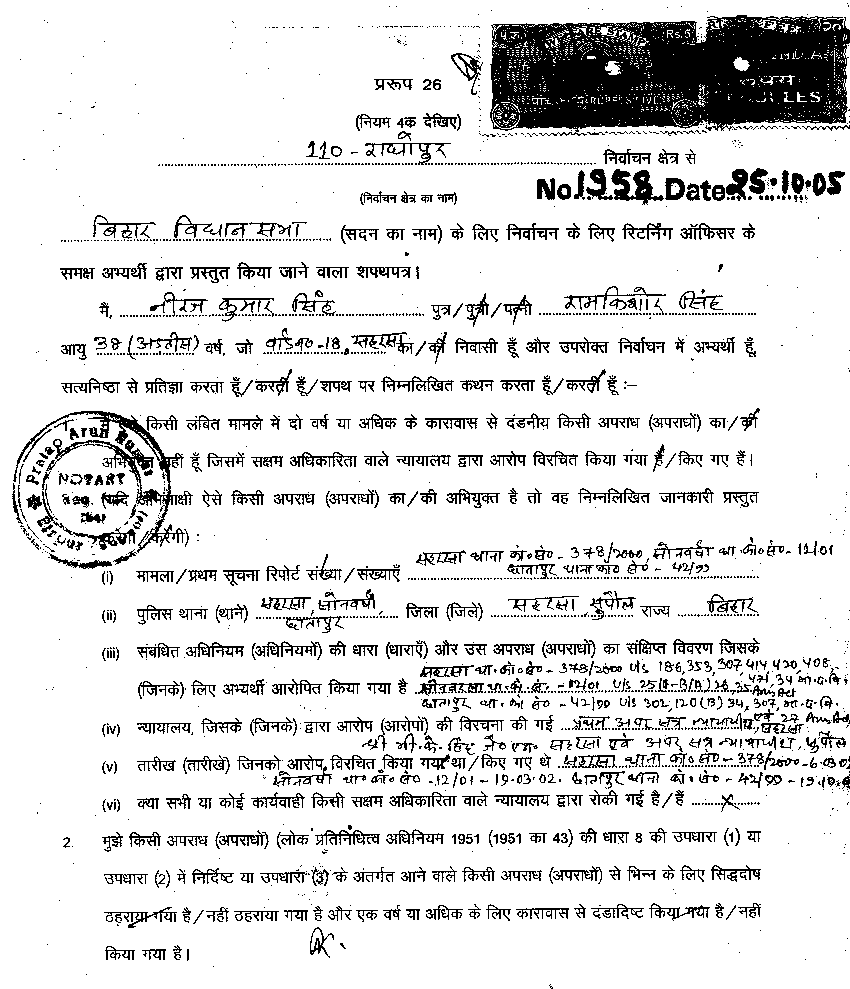 WELFARE STAMP Rs.5
प्ररूप 26
(नियम 4क देखिए)
110 - राघोपुर निर्वाचन क्षेत्र से
(निर्वाचन क्षेत्र का नाम)
No.1958 Date 25.10.05
बिहार विधान सभा (सदन का नाम) के लिए निर्वाचन के लिए रिटर्निंग ऑफिसर के
समक्ष अभ्यर्थी द्वारा प्रस्तुत किया जाने वाला शपथपत्र।
मैं, नीरज कुमार सिंह पुत्र/पुत्री/पत्नी रामकिशोर सिंह
आयु 38 (अड़तीस) वर्ष, जो वार्ड नं०-18, सहरसा का/की निवासी हूँ और उपरोक्त निर्वाचन में अभ्यर्थी हूँ,
सत्यनिष्ठा से प्रतिज्ञा करता हूँ/करती हूँ/शपथ पर निम्नलिखित कथन करता हूँ/करती हूँ :–
किसी लंबित मामले में दो वर्ष या अधिक के कारावास से दंडनीय किसी अपराध (अपराधों) का/की
नहीं हूँ जिसमें सक्षम अधिकारिता वाले न्यायालय द्वारा आरोप विरचित किया गया है/किए गए हैं।
(यदि अभिसाक्षी ऐसे किसी अपराध (अपराधों) का/की अभियुक्त है तो वह निम्नलिखित जानकारी प्रस्तुत
करेगा/करेगी) :
Pratap Arun Kumar
NOTARY
Reg.
Birpur (Supaul)
(i) मामला/प्रथम सूचना रिपोर्ट संख्या/संख्याएँ सहरसा थाना कां०सं०-378/2000, सोनवर्षा था.कां०सं०-12/01
छातापुर थाना कां० सं०-42/99
(ii) पुलिस थाना (थाने) सहरसा, सोनवर्षा, जिला (जिले) सहरसा, सुपौल राज्य बिहार
छातापुर
(iii) संबंधित अधिनियम (अधिनियमों) की धारा (धाराएँ) और उस अपराध (अपराधों) का संक्षिप्त विवरण जिसके
सहरसा था.कां०सं०-378/2000 u/s 186, 353, 307, 414, 420, 408,
(जिनके) लिए अभ्यर्थी आरोपित किया गया है 471, 34 भा.द.वि.
सोनवरसा था.कां.सं.-12/01 u/s 26, 35 Arms Act
छातापुर था.कां.सं०-42/99 u/s 302, 120(B) 34, 307, भा.द.वि.
एवं 27 Arms Act
(iv) न्यायालय, जिसके (जिनके) द्वारा आरोप (आरोपों) की विरचना की गई प्रथम अपर सत्र न्यायाधीश, सहरसा
सहरसा एवं अपर सत्र न्यायाधीश, सुपौल
(v) तारीख (तारीखें) जिनको आरोप विरचित किया गया था/किए गए थे सहरसा थाना कां०सं०-378/2000-6.03.0
सोनवर्षा था०कां०सं०-12/01-19.03.02. छातापुर थाना कां.सं०-42/99-19.10.0
(vi) क्या सभी या कोई कार्यवाही किसी सक्षम अधिकारिता वाले न्यायालय द्वारा रोकी गई है/हैं X
2. मुझे किसी अपराध (अपराधों) (लोक प्रतिनिधित्व अधिनियम 1951 (1951 का 43) की धारा 8 की उपधारा (1) या
उपधारा (2) में निर्दिष्ट या उपधारा (3) के अंतर्गत आने वाले किसी अपराध (अपराधों) से भिन्न के लिए सिद्धदोष
ठहराया गया है/नहीं ठहराया गया है और एक वर्ष या अधिक के लिए कारावास से दंडादिष्ट किया गया है/नहीं
किया गया है।